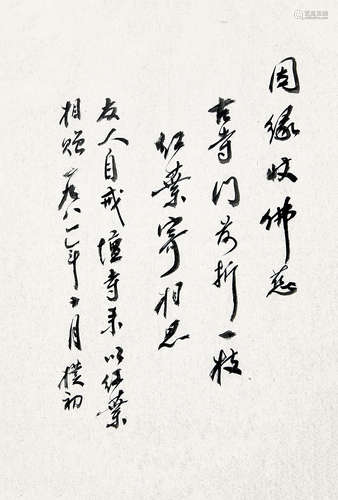 因缘佛慈
古寺门前折一枝
红葉寄相思
友人自戒壇寺来以红葉
相赠 八一年十月 樸初